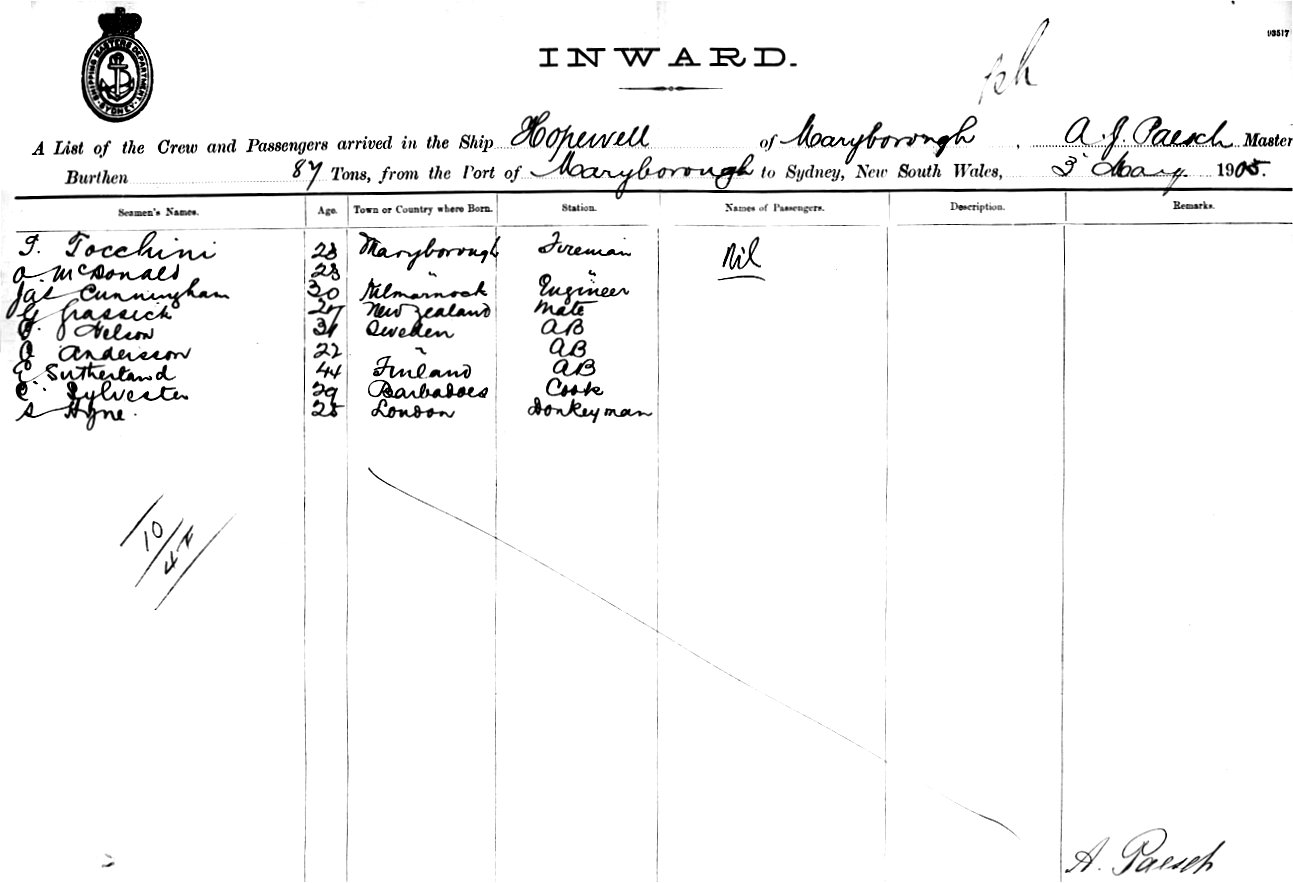 SHIPPING MASTERS DEPARTMENT SYDNEY
93517
INWARD.
A List of the Crew and Passengers arrived in the Ship Hopewell of Maryborough, A. J. Paesch Master
Burthen 87 Tons, from the Port of Maryborough to Sydney, New South Wales, 3 May 1905.
Seamen's Names. Age. Town or Country where Born. Station. Names of Passengers. Description. Remarks.
T. Tocchini 23 Maryborough Fireman Nil
A McDonald 23 " "
Jas Cunningham 30 Kilmarnock Engineer
G Grassick 27 New Zealand Mate
Nelson 31 Sweden AB
A Andersson 22 " AB
E Sutherland 44 Finland AB
C. Sylvester 29 Barbadoes Cook
S Hyne. 25 London Donkeyman
10
A. Paesch